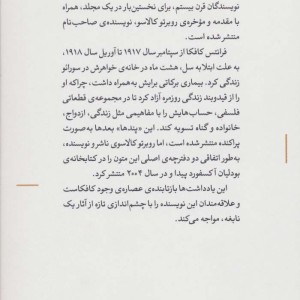 نویسندگان قرن بیستم، برای نخستین‌بار در یک مجلد، همراه
با مقدمه و مؤخره‌ی روبرتو کالاسو، نویسنده‌ی صاحب‌نام
منتشر شده است.
فرانتس کافکا از سپتامبر سال ۱۹۱۷ تا آوریل سال ۱۹۱۸،
به علت ابتلا به سل، هشت ماه در خانه‌ی خواهرش در سورائو
زندگی کرد. بیماری برکاتی برایش به‌همراه داشت، چراکه او
را از قیدوبند زندگی روزمره آزاد کرد تا در مجموعه‌ی قطعاتی
فلسفی، حساب‌هایش را با مفاهیمی مثل زندگی، ازدواج،
خانواده و گناه تسویه کند. این «پندها» بعدها به‌صورت
پراکنده منتشر شده است، اما روبرتو کالاسوی ناشر و نویسنده،
به‌طور اتفاقی دو دفترچه‌ی اصلی این متون را در کتابخانه‌ی
بودلیان آکسفورد پیدا و در سال ۲۰۰۴ منتشر کرد.
این یادداشت‌ها بازتابنده‌ی عصاره‌ی وجود کافکاست
و علاقه‌مندان این نویسنده را با چشم‌اندازی تازه از آثار یک
نابغه، مواجه می‌کند.